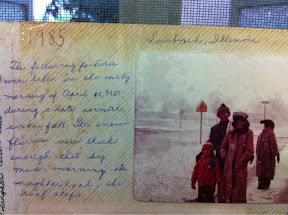 1985
Lombard, Illinois
The following pictures
were taken in the early
morning of April 1985
during a late winter
snowfall. The snow
flurries were thick
enough that by
mid morning the
neighborhood, the